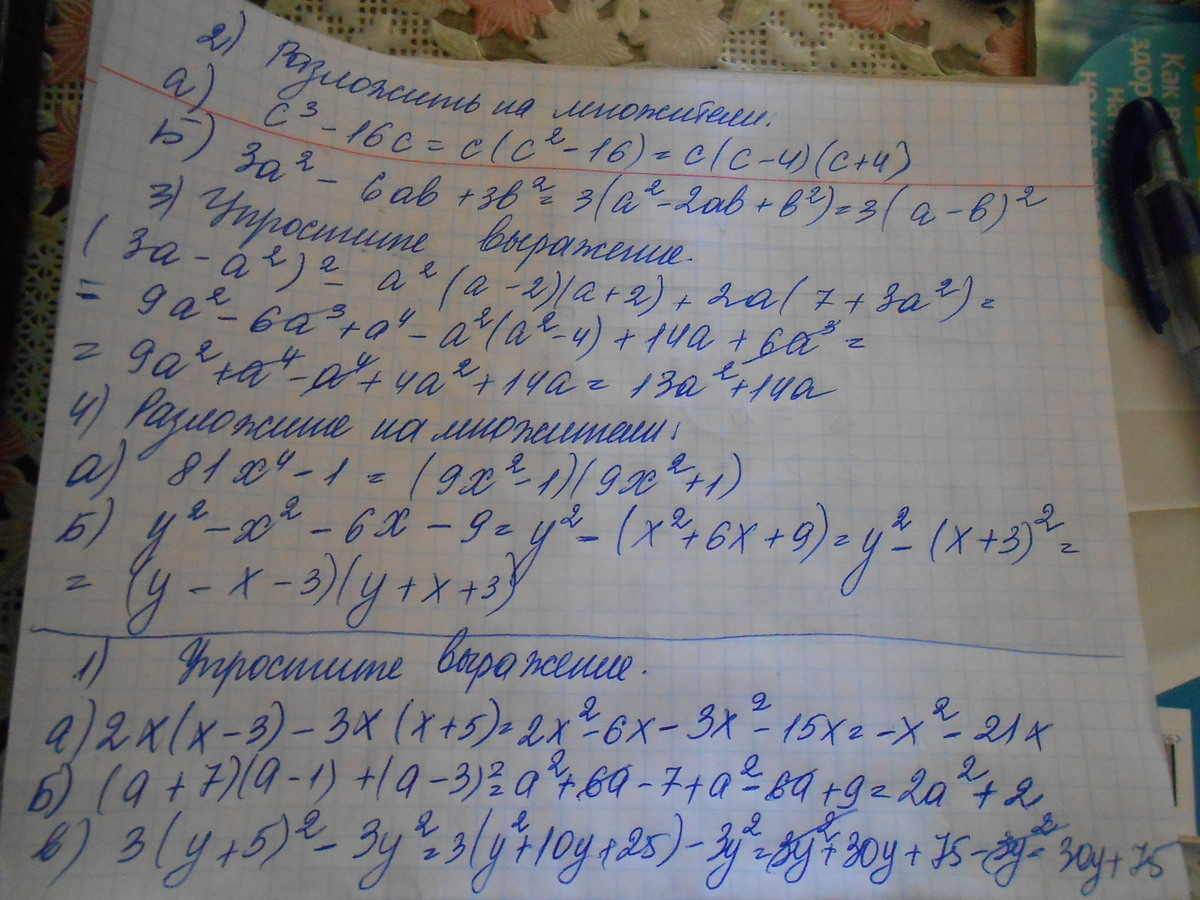 2) Разложить на множители:
а) c³ - 16c = c(c² - 16) = c(c-4)(c+4)
Б) 3a² - 6ab + 3b² = 3(a² - 2ab + b²) = 3(a-b)²
3) Упростите выражение.
(3a - a²)² - a²(a-2)(a+2) + 2a(7+3a²) =
= 9a² - 6a³ + a⁴ - a²(a²-4) + 14a + 6a³ =
= 9a² + a⁴ - a⁴ + 4a² + 14a = 13a² + 14a
4) Разложите на множители:
а) 81x⁴ - 1 = (9x² - 1)(9x² + 1)
Б) y² - x² - 6x - 9 = y² - (x² + 6x + 9) = y² - (x+3)² =
= (y - x - 3)(y + x + 3)
1) Упростите выражение.
а) 2x(x-3) - 3x(x+5) = 2x² - 6x - 3x² - 15x = -x² - 21x
Б) (a+7)(a-1) + (a-3)² = a² + 6a - 7 + a² - 6a + 9 = 2a² + 2
в) 3(y+5)² - 3y² = 3(y² + 10y + 25) - 3y² = 3y² + 30y + 75 - 3y² = 30y + 75
Как
здор
На